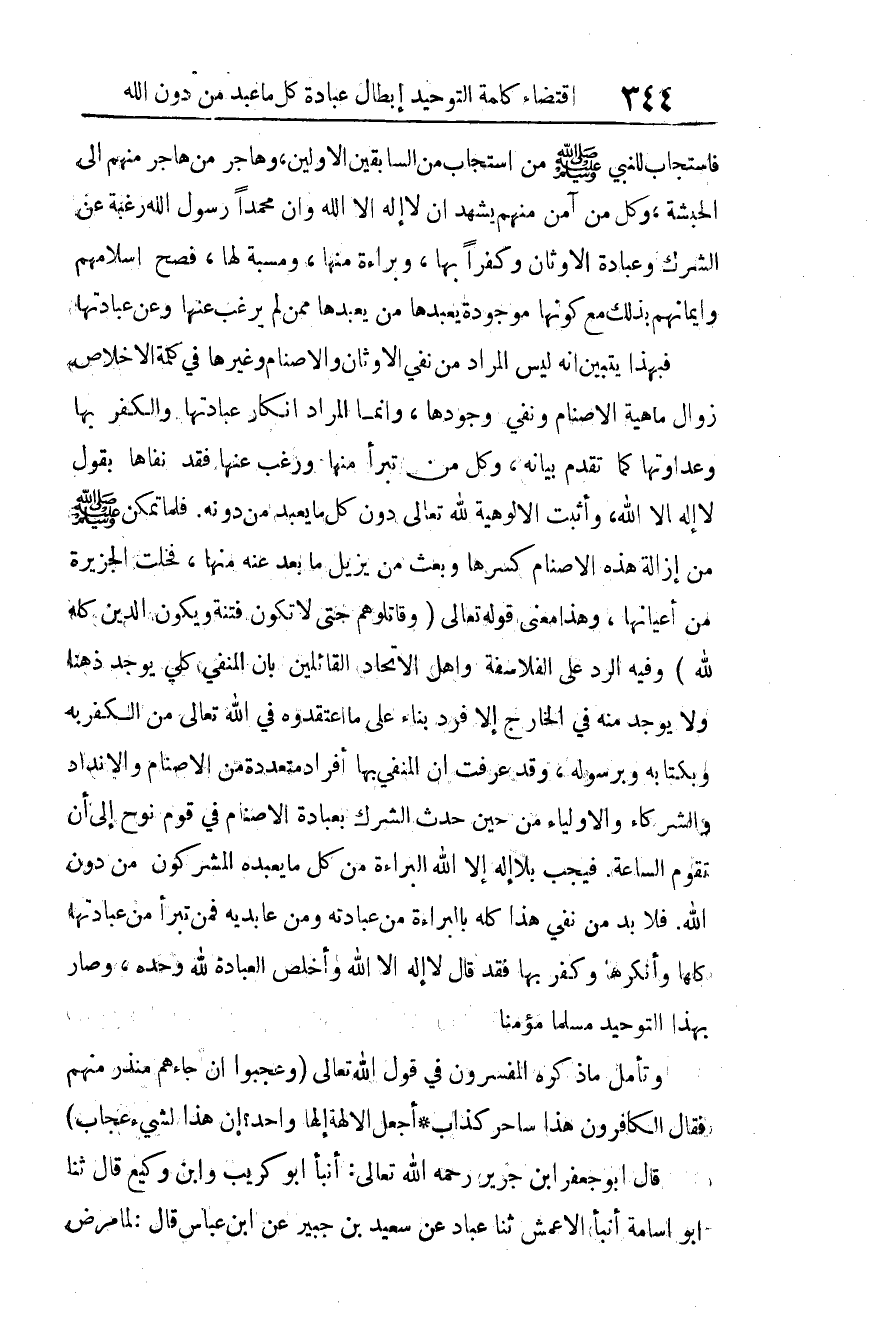 ٣٤٤ اقتضاء كلمة التوحيد إبطال عبادة كل ماعبد من دون الله
فاستجاب للنبي ﷺ من استجاب من السابقين الاولين، وهاجر من هاجر منهم الى
الحبشة، وكل من آمن منهم يشهد ان لاإله الا الله وان محمداً رسول الله رغبة عن
الشرك وعبادة الاوثان وكفراً بها، وبراءة منها، ومسبة لها، فصح اسلامهم
وايمانهم بذلك مع كونها موجودة يعبدها من يعبدها ممن لم يرغب عنها وعن عبادتها
فبهذا يتبين انه ليس المراد من نفي الاوثان والاصنام وغيرها في كلمة الاخلاص
زوال ماهية الاصنام ونفي وجودها، وانمـا المراد انكار عبادتها والكفر بها
وعداوتها كما تقدم بيانه، وكل من تبرأ منها ورغب عنها فقد نفاها بقول
لاإله الا الله، وأثبت الالوهية لله تعالى دون كل مايعبد من دونه. فلما تمكن ﷺ
من إزالة هذه الاصنام كسرها وبعث من يزيل ما بعد عنه منها، فخلت الجزيرة
من أعيانها، وهذا معنى قوله تعالى (وقاتلوهم حتى لاتكون فتنة ويكون الدين كله
لله) وفيه الرد على الفلاسفة واهل الاتحاد القائلين بان المنفي كلي يوجد ذهنا
ولا يوجد منه في الخارج إلا فرد بناء على مااعتقدوه في الله تعالى من الكفر به
وبكتابه وبرسوله، وقد عرفت ان المنفي بها أفراد متعددة من الاصنام والانداد
والشركاء والاولياء من حين حدث الشرك بعبادة الاصنام في قوم نوح إلى أن
تقوم الساعة. فيجب بلاإله إلا الله البراءة من كل مايعبده المشركون من دون
الله. فلا بد من نفي هذا كله بالبراءة من عبادته ومن عابديه فمن تبرأ من عبادتها
كلها وأنكرها وكفر بها فقد قال لاإله الا الله وأخلص العبادة لله وحده، وصار
بهذا التوحيد مسلما مؤمنا
وتأمل ماذكره المفسرون في قول الله تعالى (وعجبوا ان جاءهم منذر منهم
فقال الكافرون هذا ساحر كذاب*أجعل الالهة إلها واحد؟إن هذا لشيء عجاب)
قال ابو جعفر ابن جرير رحمه الله تعالى: أنبأ ابو كريب وابن وكيع قال ثنا
ابو اسامة أنبأ الاعمش ثنا عباد عن سعيد بن جبير عن ابن عباس قال: لما مرض